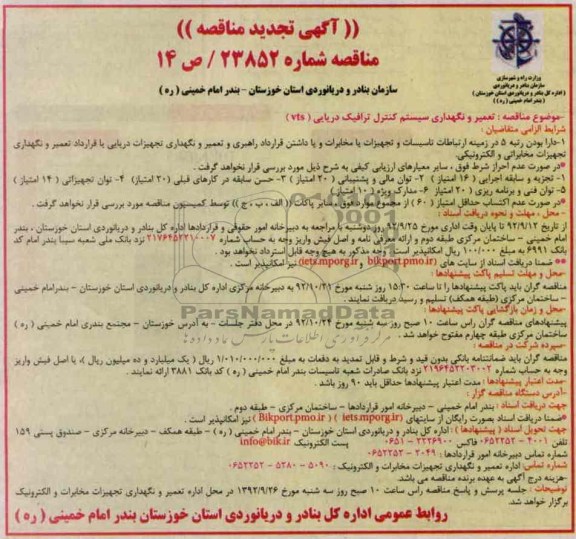 (( آگهی تجدید مناقصه ))
مناقصه شماره ۲۳۸۵۲ / ص ۱۴
سازمان بنادر و دریانوردی استان خوزستان - بندر امام خمینی ( ره )
وزارت راه و شهرسازی
سازمان بنادر و دریانوردی
(اداره کل بنادر و دریانوردی استان خوزستان)
(بندر امام خمینی (ره))
-موضوع مناقصه : تعمیر و نگهداری سیستم کنترل ترافیک دریایی ( vts )
شرایط الزامی متقاضیان :
۱-دارا بودن رتبه ۵ در زمینه ارتباطات تاسیسات و تجهیزات یا مخابرات و یا داشتن قرارداد راهبری و تعمیر و نگهداری تجهیزات دریایی یا قرارداد تعمیر و نگهداری
تجهیزات مخابراتی و الکترونیکی.
*در صورت عدم احراز شرط فوق ، سایر معیارهای ارزیابی کیفی به شرح ذیل مورد بررسی قرار نخواهد گرفت .
۱- تجزیه و سابقه اجرایی ( ۱۶ امتیاز ) ۲- توان مالی و پشتیبانی ( ۲۰ امتیاز ) ۳- حسن سابقه در کارهای قبلی (۲۰ امتیاز) ۴- توان تجهیزاتی ( ۱۴ امتیاز )
۵- توان فنی و برنامه ریزی ( ۲۰ امتیاز) ۶- مدارک ویژه ( ۱۰ امتیاز)
*در صورت عدم اکتساب حداقل امتیاز ( ۶۰ ) از مجموع موارد فوق ، سایر پاکت (( الف ، ب ، ج )) توسط کمیسیون مناقصه مورد بررسی قرار نخواهد گرفت .
- محل ، مهلت و نحوه دریافت اسناد :
از تاریخ ۹۲/۹/۱۲ تا پایان وقت اداری مورخ ۹۲/۹/۲۵ روز دوشنبه با مراجعه به دبیرخانه امور حقوقی و قراردادها اداره کل بنادر و دریانوردی استان خوزستان ، بندر
امام خمینی – ساختمان مرکزی طبقه دوم و ارائه معرفی نامه و اصل فیش واریز وجه به حساب شماره ۲۱۷۶۴۵۲۲۱۰۰۷ نزد بانک ملی شعبه سیبا بندر امام کد
بانک ۶۹۹۱ به مبلغ ۱۰۰/۰۰۰ ریال امکانپذیر است . وجه مذکور به هیچ وجه قابل استرداد نخواهد بود .
** ضمنا دریافت اسناد از سایت های (bikport.pmo.ir و iets.mporg.ir) نیز امکانپذیر است .
-محل و مهلت تسلیم پاکت پیشنهادها :
مناقصه گران باید پاکت پیشنهادها را تا ساعت ۱۵:۳۰ روز شنبه مورخ ۹۲/۱۰/۲۱ به دبیرخانه مرکزی اداره کل بنادر و دریانوردی استان خوزستان – بندرامام خمینی
– ساختمان مرکزی (طبقه همکف) تسلیم و رسید دریافت نمایند .
-محل و زمان بازگشایی پاکت پیشنهادها :
پیشنهادهای مناقصه گران راس ساعت ۱۰ صبح روز سه شنبه مورخ ۹۲/۱۰/۲۴ در محل دفتر جلسات – به آدرس خوزستان – مجتمع بندری امام خمینی ( ره )
ساختمان مرکزی طبقه چهارم مفتوح خواهد شد .
-سپرده شرکت در مناقصه :
مناقصه گران باید ضمانتنامه بانکی بدون قید و شرط و قابل تمدید به دفعات به مبلغ ۱/۰۱۰/۰۰۰/۰۰۰ ریال ( یک میلیارد و ده میلیون ریال )، یا اصل فیش واریز
وجه به حساب شماره ۲۱۹۶۴۵۲۲۰۳۰۰۲ نزد بانک صادرات شعبه تاسیسات بندر امام خمینی ( ره ) کد بانک ۳۸۸۱ ارائه نمایند .
-مدت اعتبار پیشنهادها : مدت اعتبار پیشنهادها حداقل باید ۹۰ روز باشد.
-آدرس دستگاه مناقصه گزار :
جهت دریافت اسناد : بندر امام خمینی – دبیرخانه امور قراردادها – ساختمان مرکزی – طبقه دوم .
*ضمنا دریافت اسناد بصورت رایگان از سایتهای (iets.mporg.ir ) و ( Bikport.pmo.ir ) نیز امکانپذیر است .
جهت تحویل اسناد ( پیشنهادها ) : اداره کل بنادر و دریانوردی استان خوزستان – بندر امام خمینی ( ره ) – طبقه همکف – دبیرخانه مرکزی – صندوق پستی ۱۵۹
تلفن : ۴۰۰۱ – ۰۶۵۲۲۵۲ فاکس ۲۲۲۶۹۰۰ – ۰۶۵۱ پست الکترونیک info@bik.ir
شماره تماس دبیرخانه امور قراردادها : ۲۰۴۹ – ۰۶۵۲۲۵۲
شماره تماس: اداره تعمیر و نگهداری تجهیزات مخابرات و الکترونیک : ۵۰۹۰ – ۵۲۸۰ – ۰۶۵۲۲۵۲
-هزینه درج آگهی به عهده برنده مناقصه می باشد .
توضیحات : جلسه پرسش و پاسخ مناقصه راس ساعت ۱۰ صبح روز سه شنبه مورخ ۱۳۹۲/۹/۲۶ در محل اداره تعمیر و نگهداری تجهیزات مخابرات و الکترونیک
برگزار خواهد شد.
روابط عمومی اداره کل بنادر و دریانوردی استان خوزستان بندر امام خمینی ( ره )
ParsNamadData